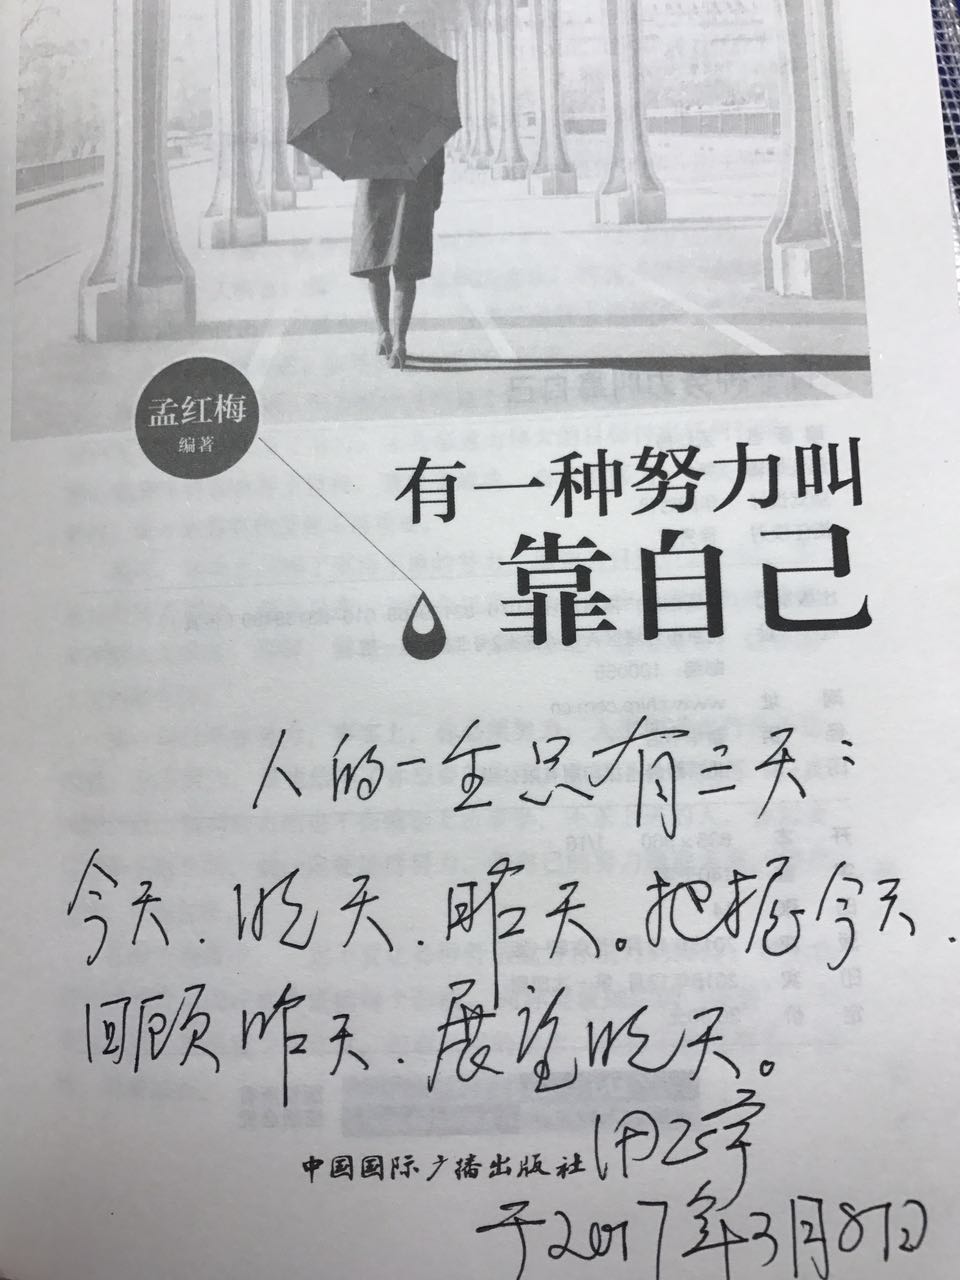 孟红梅
编著
有一种努力叫
靠自己
人的一生总有三天：
今天.明天.昨天。把握今天.
回顾昨天.展望明天。
中国国际广播出版社
于2017年3月8日